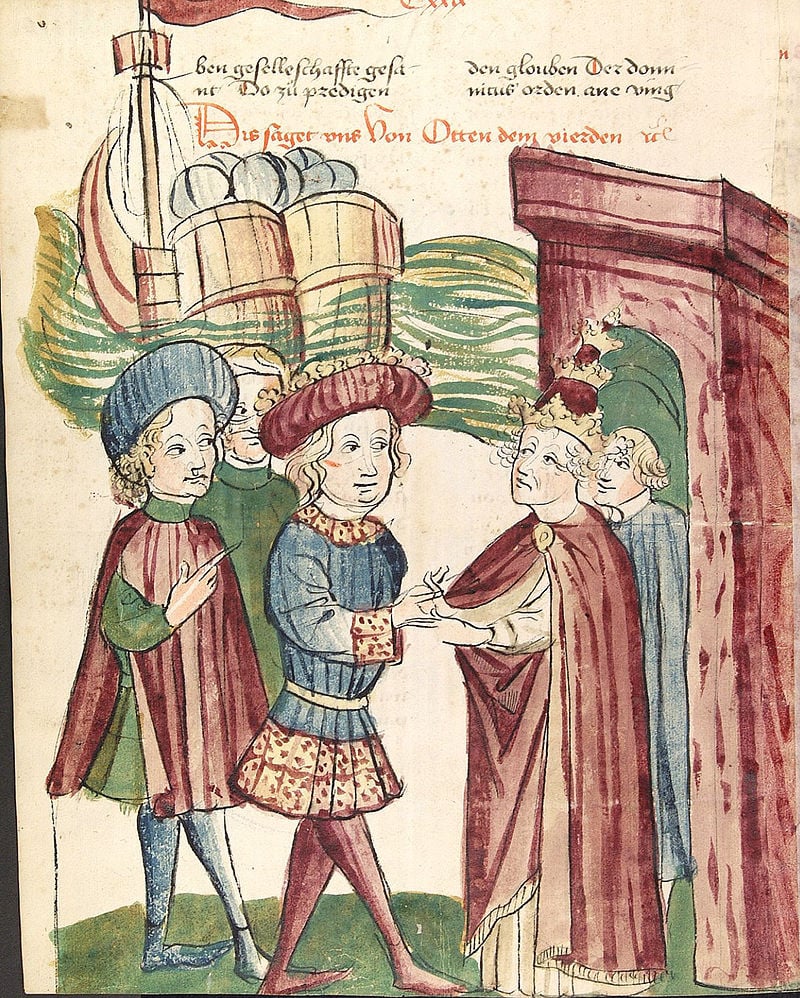 ben geselleschaffte gesa-
nt Do zü predigen
den glouben Der domi-
nicus orden ane ving
Dis saget vns von Otten dem vierden